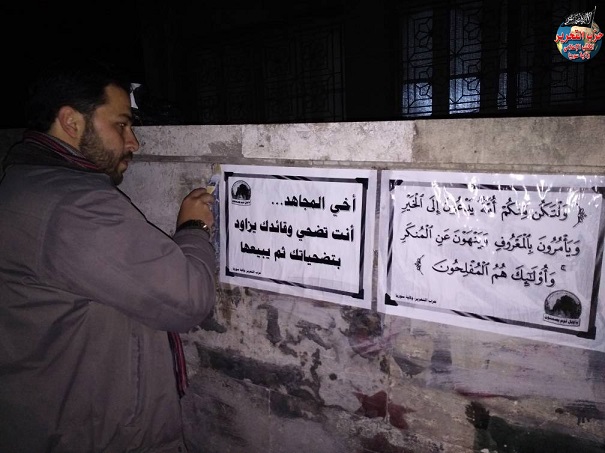 حزب التحرير
أخي المجاهد...
أنت تضحي وقائدك يزاود
بتضحياتك ثم يبيعها
حزب التحرير ولاية سوريا
﴿ وَلْتَكُن مِّنكُمْ أُمَّةٌ يَدْعُونَ إِلَى الْخَيْرِ
وَيَأْمُرُونَ بِالْمَعْرُوفِ وَيَنْهَوْنَ عَنِ الْمُنكَرِ
ۚ وَأُوْلَـٰئِكَ هُمُ الْمُفْلِحُونَ ﴾
حزب التحرير ولاية سوريا